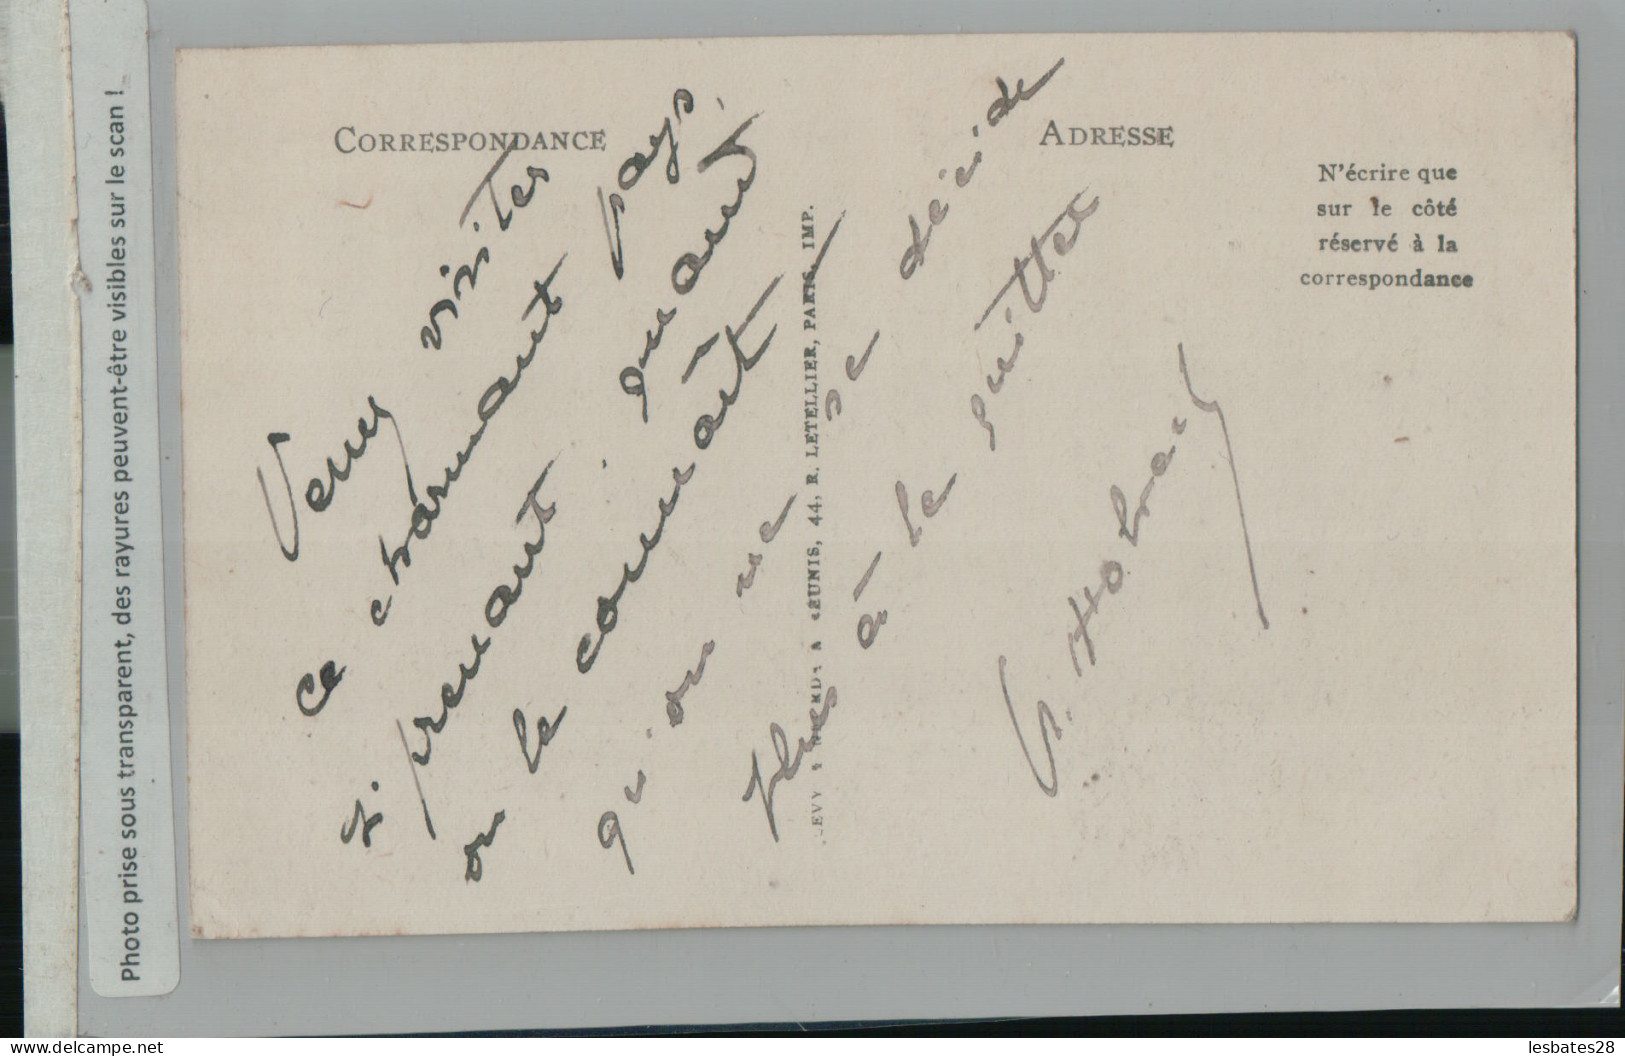 Photo prise sous transparent, des rayures peuvent-être visibles sur le scan !
CORRESPONDANCE
ADRESSE
N'écrire que
sur le côté
réservé à la
correspondance
Venez visiter
ce charmant pays
et prenant quand
on le connaît
qu'on ne se décide
plus à le quitter
LEVY & NEURDEIN RÉUNIS, 44, R. LETELLIER, PARIS, IMP.
www.delcampe.net
lesbates28